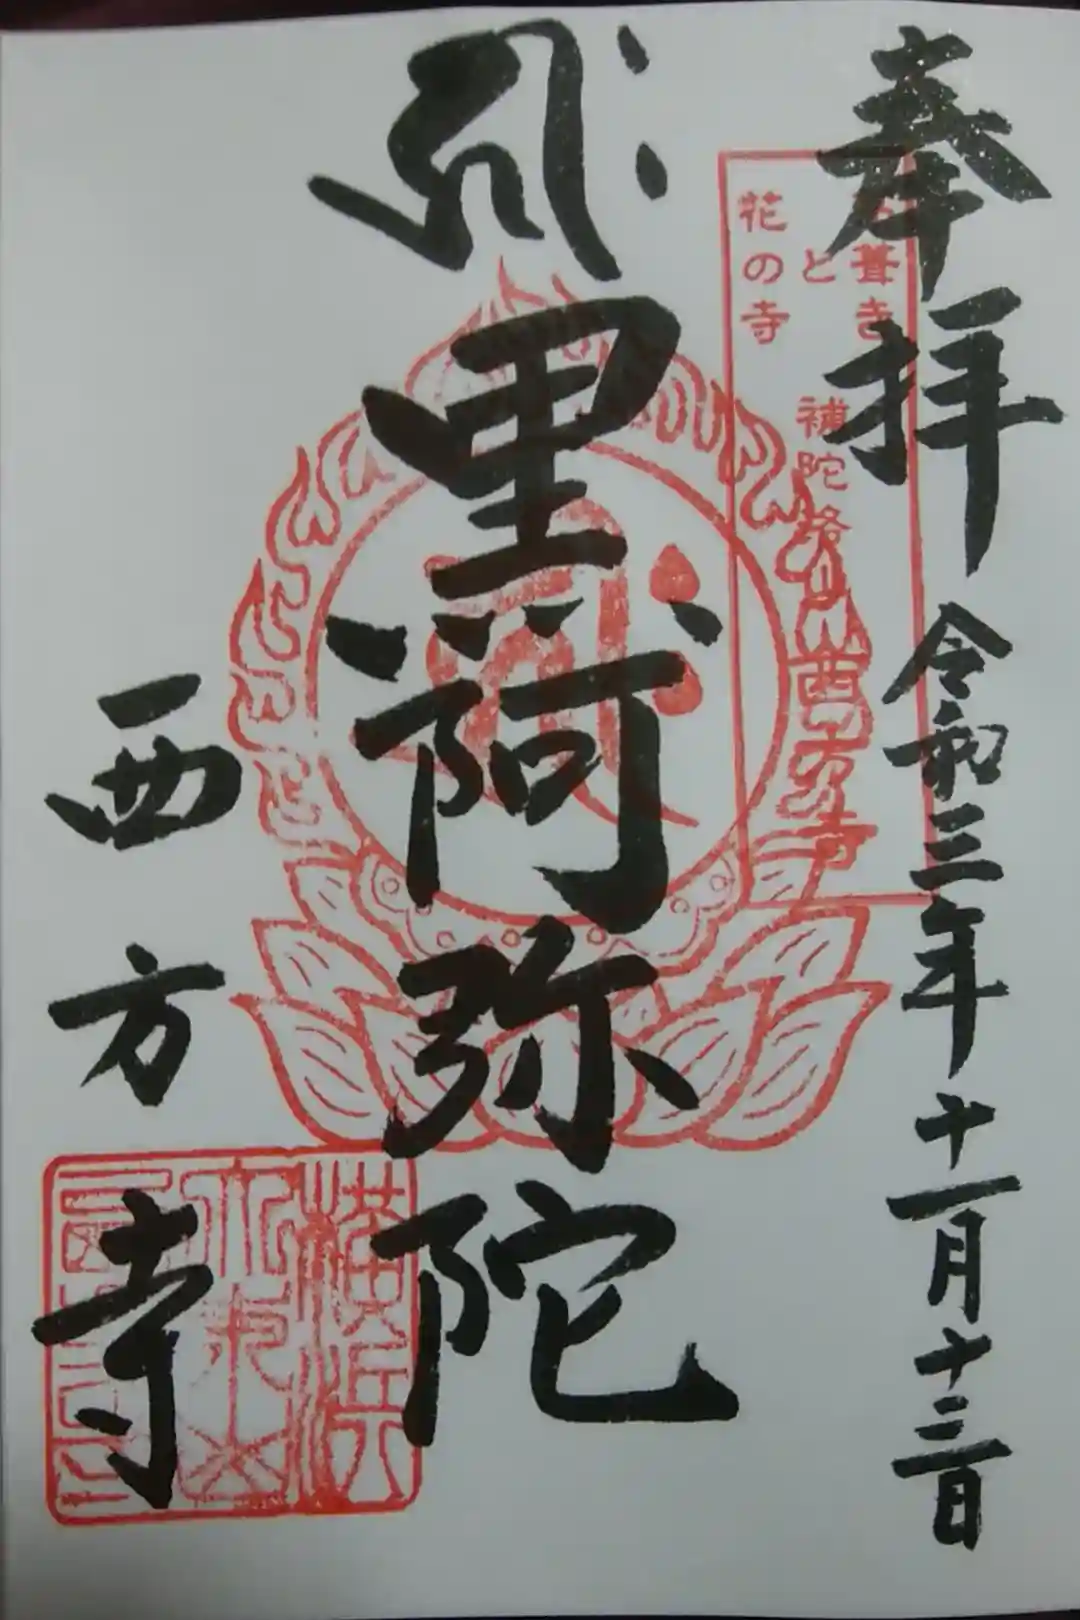 奉拝
令和三年十一月十三日
葺寺
と
花の寺
補陀洛山
西方寺
黒阿弥陀
西方寺
横浜